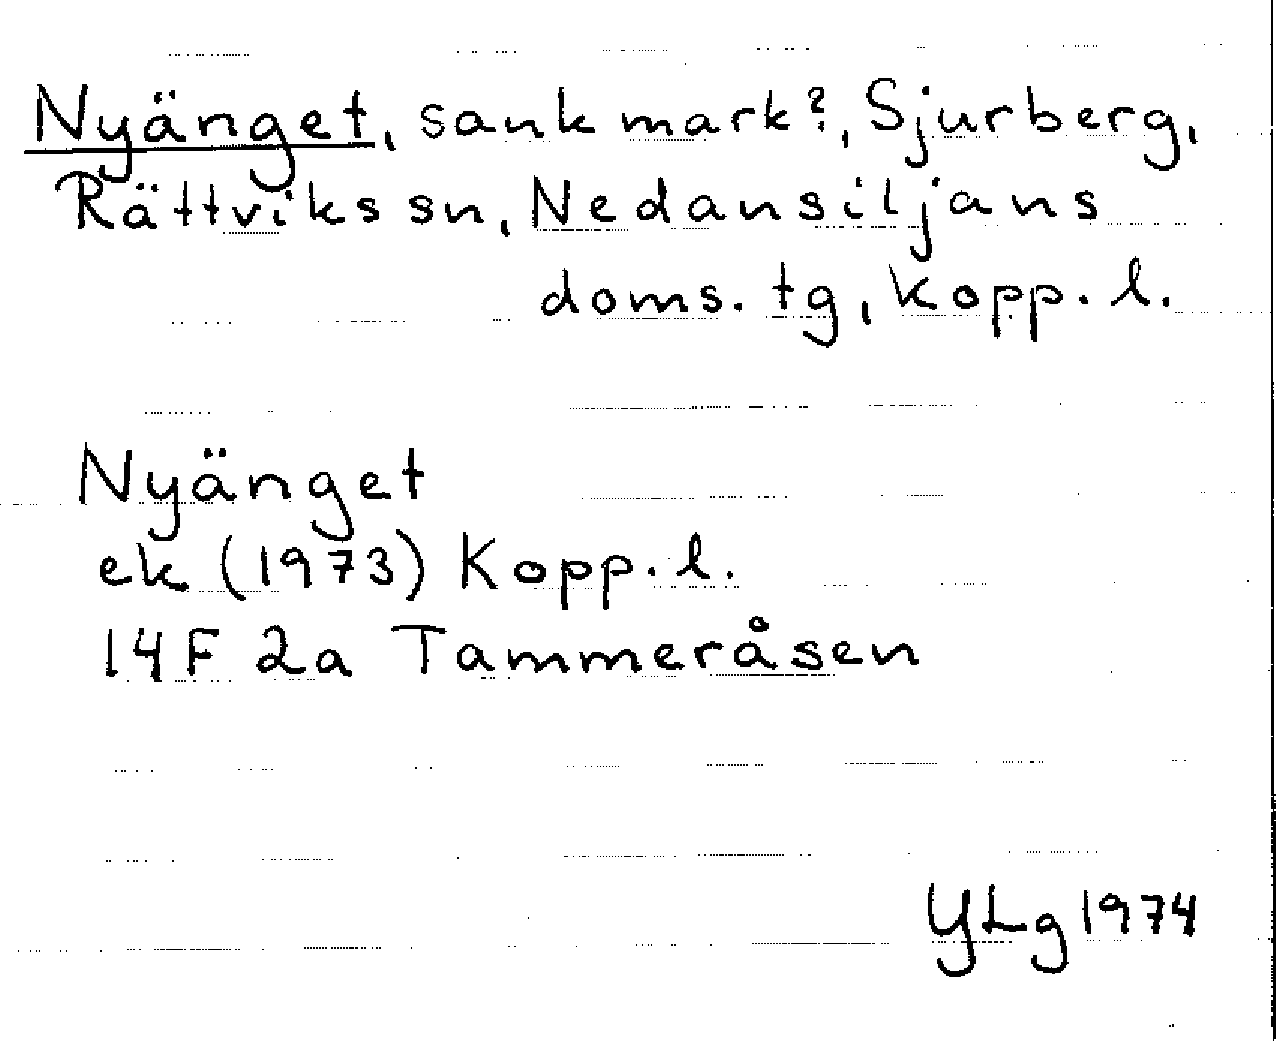 Nyänget, sank mark?, Sjurberg,
Rättviks sn, Nedansiljans
doms. tg, Kopp. l.
Nyänget
ek (1973) Kopp. l.
14F 2a Tammeråsen
YLg 1974